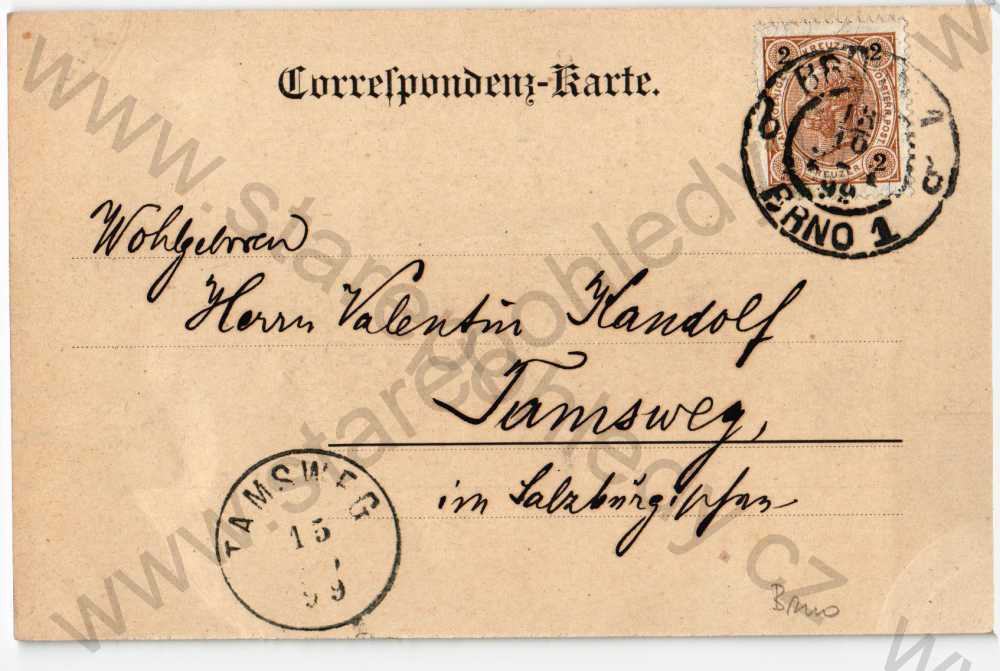 Correspondenz-Karte.
2 KREUZER 2
2
KREUZER
BRÜNN 1
13
16
99
BRNO 1
Wohlgeboren
Herrn Valentin Kandolf
Tamsweg,
im Salzburgischen
TAMSWEG
15
99
Brno
www.staredohledy.cz